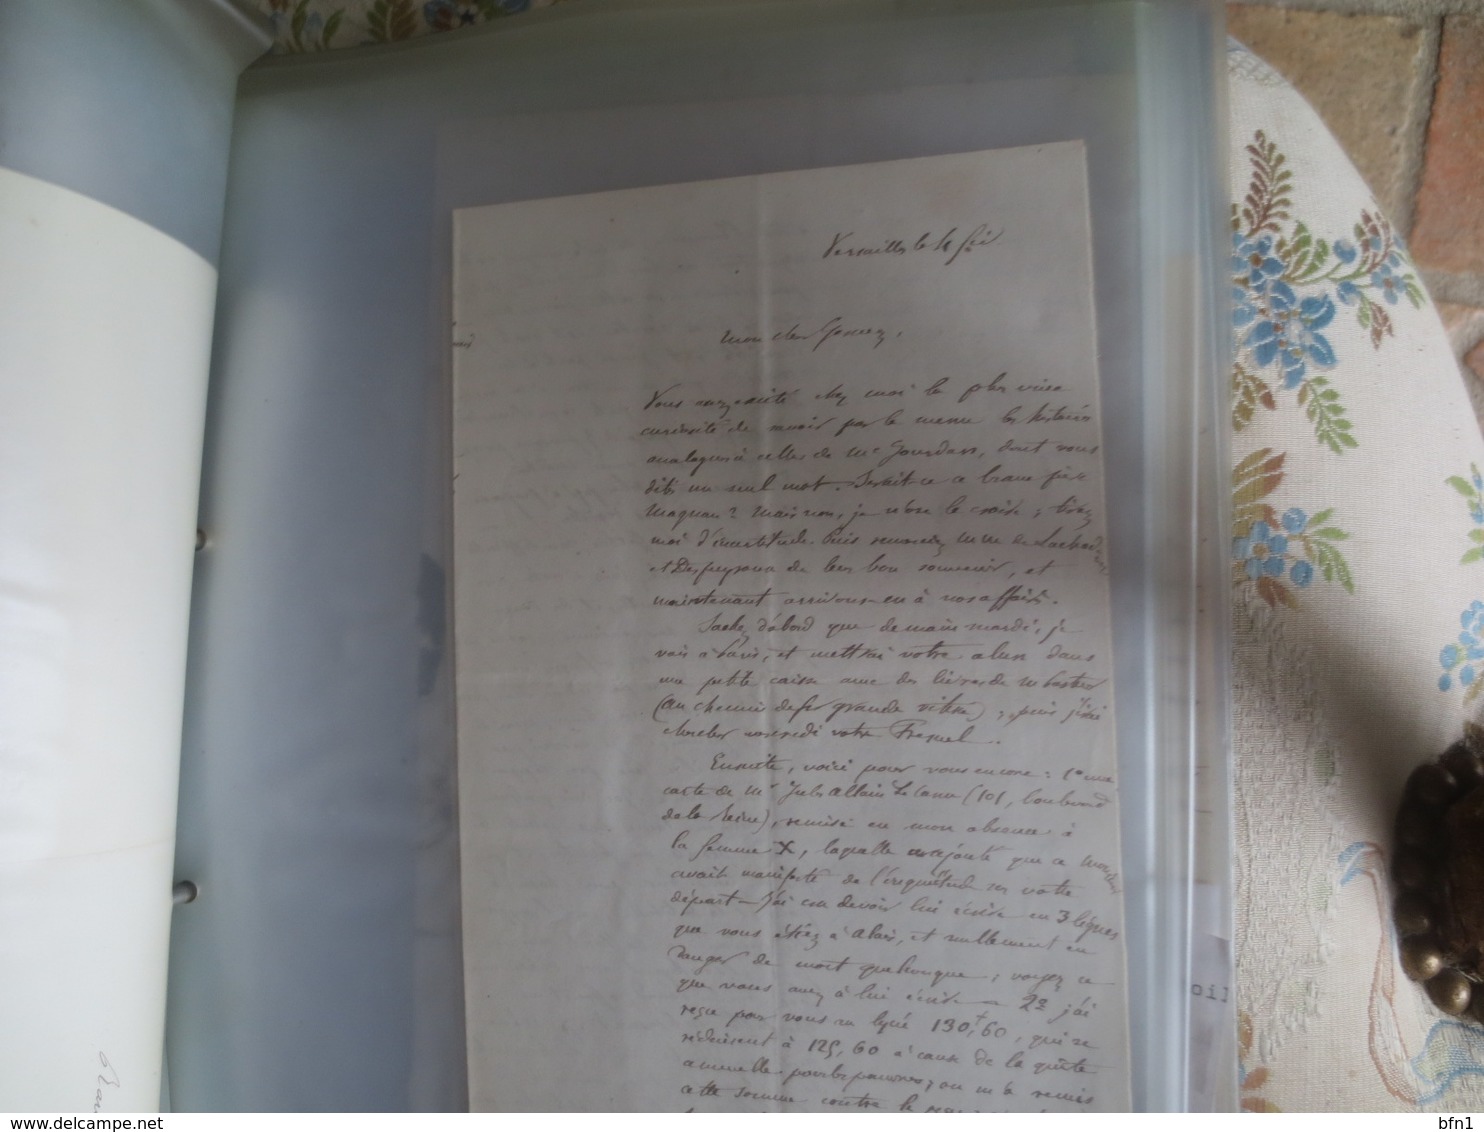 Versailles le 4
mon cher
Vous avez excité chez moi la plus vive
curiosité de savoir par le menu les histoires
analogues à celles de Mr Jourdan, dont vous
dites un seul mot. Serait ce ce brave père
Magnan? Mais non, je n'ose le croire; tirez
moi d'incertitude. Puis remerciez MM de
et de leur bon souvenir, et
maintenant arrivons-en à nos affaires.
Sachez d'abord que demain mardi, je
vais à Paris, et mettrai votre dans
une petite caisse avec des livres de
(au chemin de fer grande vitesse), puis j'irai
chercher mercredi votre Fresnel.
Ensuite, voici pour vous encore: 1º une
carte de Mr Jules Allain Le Canu (101, boulevard
de la Reine), remise en mon absence à
la femme X, laquelle m'a ajouté que ce Monsieur
avait manifesté de l'inquiétude sur votre
départ — J'ai cru devoir lui écrire en 3 lignes
que vous étiez à Alais, et nullement en
danger de mort quelconque; voyez ce
que vous avez à lui écrire — 2º j'ai
reçu pour vous au lycée 130f,60, qui se
réduisent à 125,60 à cause de la quête
annuelle pour les pauvres; on m'a remis
cette somme contre le
oil
Delcampe.net
bfn1